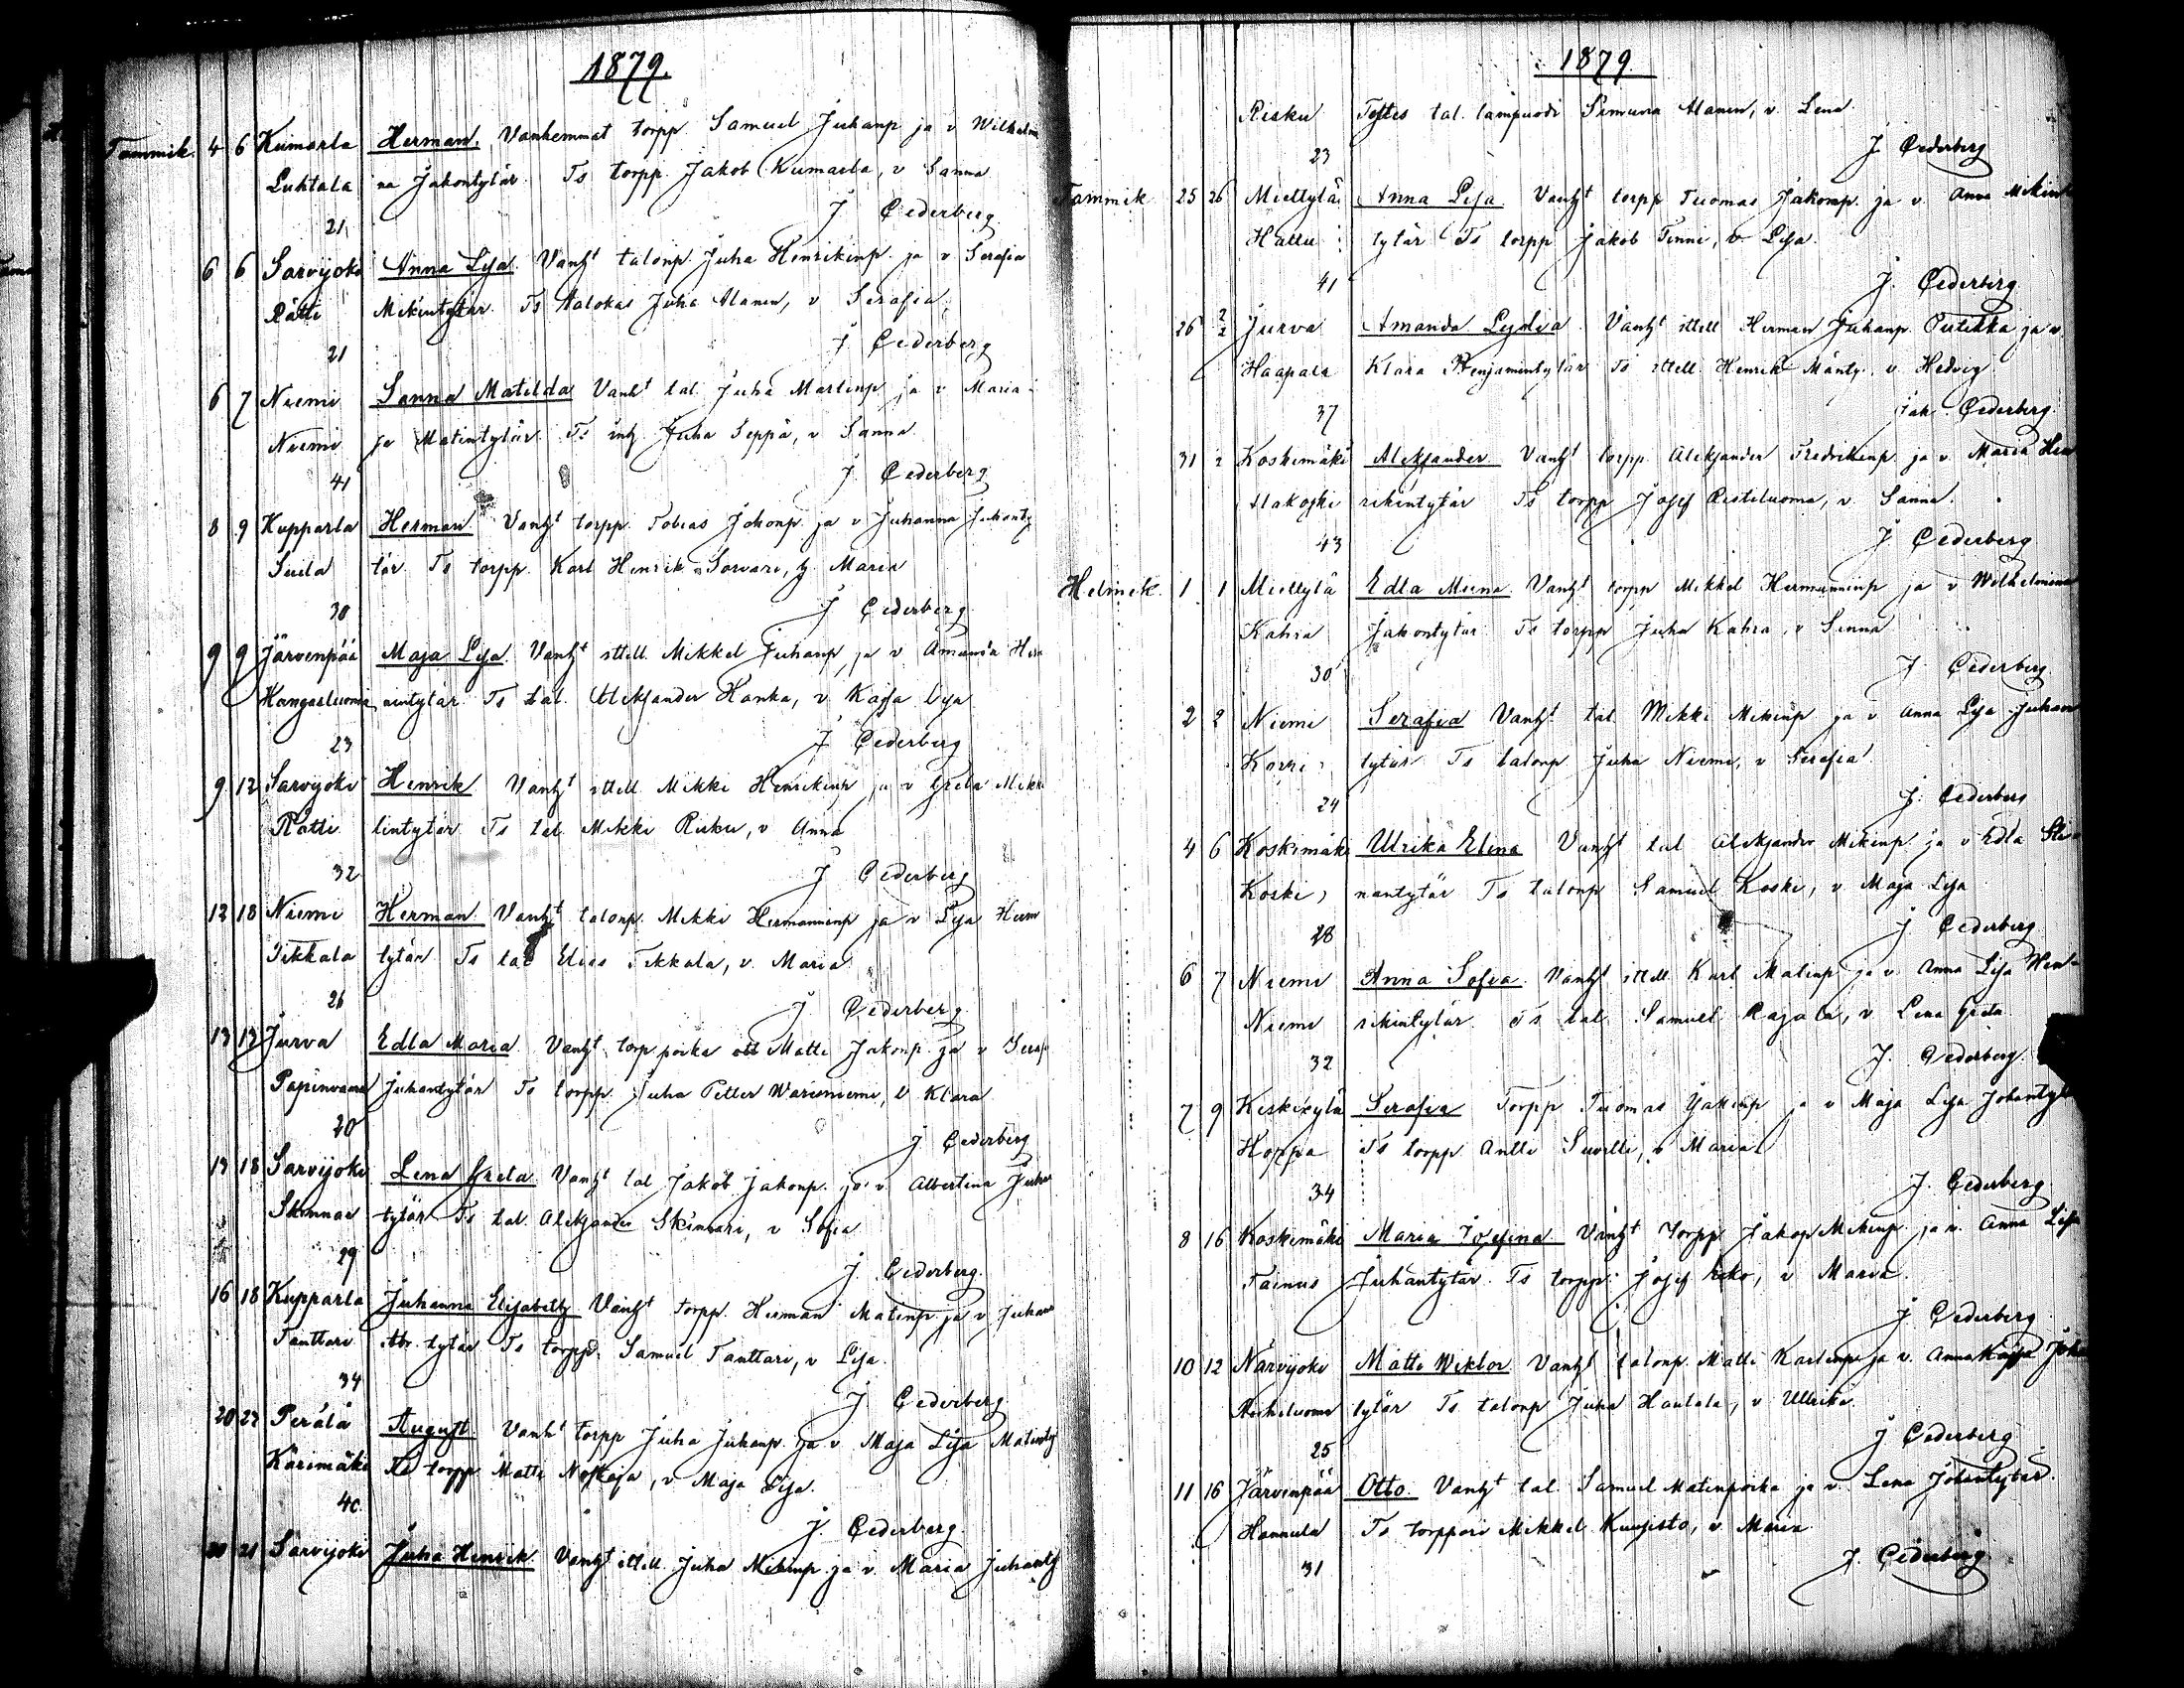 1879.
Tammik. 4 6 Kumarla Herman. Vanhemmat torpp. Samuel Juhanp ja v Wilhelmi
Luhtala na Jakontytär. Ts torpp. Jakob Kumarla, v Sanna
21 J Cederberg
6 6 Sarvijoki Anna Lisa. Vanht talonp. Juha Henrikinp. ja v Serafia
Rätti Mikintytär. Ts talokas Juha Alanen, v Serafia
21 J Cederberg
6 7 Niemi Sanna Matilda Vanht tal. Juha Martinp ja v Maria
Niemi Matintytär. Ts Juha Seppä, v Sanna
41 J Cederberg
8 9 Kupparla Herman. Vanht torpp. Tobias Jakonp ja v Juhanna Jakonty
tär. Ts torpp. Karl Henrik Sorvari, Maria
30 J Cederberg
9 9 Järvenpää Maja Lisa. Vanht ittell. Mikkel Juhanp. ja v Amanda Her
Hangasluoma nintytär Ts tal. Aleksander Hanka, v Kajsa Lisa
23 J Cederberg
9 12 Sarvijoki Henrik Vanht ittell. Mikki Henrikinp ja v Greta Mikk
Rätti Ts tal. Mikki Risku, v Anna
32 J Cederberg
12 18 Niemi Herman Vanht talonp. Mikki Hermaninp ja v Lisa Herm
Tikkala tytär Ts tal Elias Tikkala, v. Maria
26 J Cederberg
13 13 Jurva Edla Maria. Vanht torp. poika Matti Jakonp. ja v Seraf
Juhantytär Ts torpp. Juha Petter Warisniemi, v Klara
20 J Cederberg
18 Sarvijoki Lena Greta Vanht tal Jakob Jakonp. ja v. Albertina Juha
tytär Ts tal. Aleksander Skinnari, v Sofia
29 J Cederberg.
16 18 Kupparla Juhanna Elisabeth Vanht torpp. Herman Matinp ja v Juhan
Tanttari tytär Ts torpp. Samuel Tanttari, v Lisa.
34 J Cederberg
20 Perälä August. Vanht torpp Juha Juhanp. ja v. Maja Lisa Matinty
Kärimäki Ts torpp Matti, v Maja Lisa.
40 J. Cederberg
21 Sarvijoki Juha Henrik. Vanht ittell. Juha Mikinp. ja v. Maria Juhanty
1879.
Risku Testes tal. lampuodi Alanen, v. Lena
23 J Cederberg
Tammik 25 26 Miettylä Anna Lisa. Vanht torpp Tuomas Jakonp. ja v. Anna Mikin
Hallu tytär Ts torpp Jakob Tinni, v Lisa.
41 J. Cederberg
26 2/2 Jurva Amanda Lydia. Vanht ittell Herman Juhanp. ja v.
Haapala Klara Benjamintytär Ts ittell. Henrik Mänty, v. Hedvig
37 Jak Cederberg
31 2 Koskimäki Aleksander Vanht torpp Aleksander Fredrikinp ja v Maria Hen
rikintytär Ts torpp Josef Ristiluoma, v Sanna.
43 J Cederberg
Helmik. 1 1 Miettylä Edla Miina. Vanht torpp Mikkel Hermaninp ja v Wilhelmina
Kahra Jakontytär Ts torpp Juha Kahra, v Sanna
30 J Cederberg
2 2 Niemi Serafia Vanht tal. Mikki Mikinp ja v Anna Lisa Juhan
tytär Ts talonp Juha Niemi, v Serafia
24 J. Cederberg
4 6 Koskimäki Ulrika Elina Vanht tal Aleksander Mikinp ja v Edla
Koski nantytär Ts talonp Samuel Koski, v Maja Lisa
28 J Cederberg
6 7 Niemi Anna Sofia. Vanht ittell. Karl Matinp ja v. Anna Lisa Hen
Niemi rikintytär Ts tal. Samuel Rajala, v Lena Greta
32 J. Cederberg
7 9 Keskikylä Serafia Torpp Tuomas ja v Maja Lisa Juhantytä
Hoppa Ts torpp Antti, v Maria
34 J. Cederberg
8 16 Koskimäki Maria Josefina Vanht torpp Jakop Mikinp. ja v. Anna Lisa
Juhantytär. Ts torpp. Josef, v Maria.
J Cederberg
10 12 Närvijoki Matts Wiktor Vanht talonp. Matti Karlinp ja v. Anna Kajsa Juha
tytär Ts talonp Juha Hautala, v Ullrika
25 J Cederberg
11 16 Järvenpää Otto. Vanht tal. Samuel Matinpoika ja v Lena Juhantytär.
Hannula Ts torppari Mikkel Kuusisto, v. Maria
31 J. Cederberg